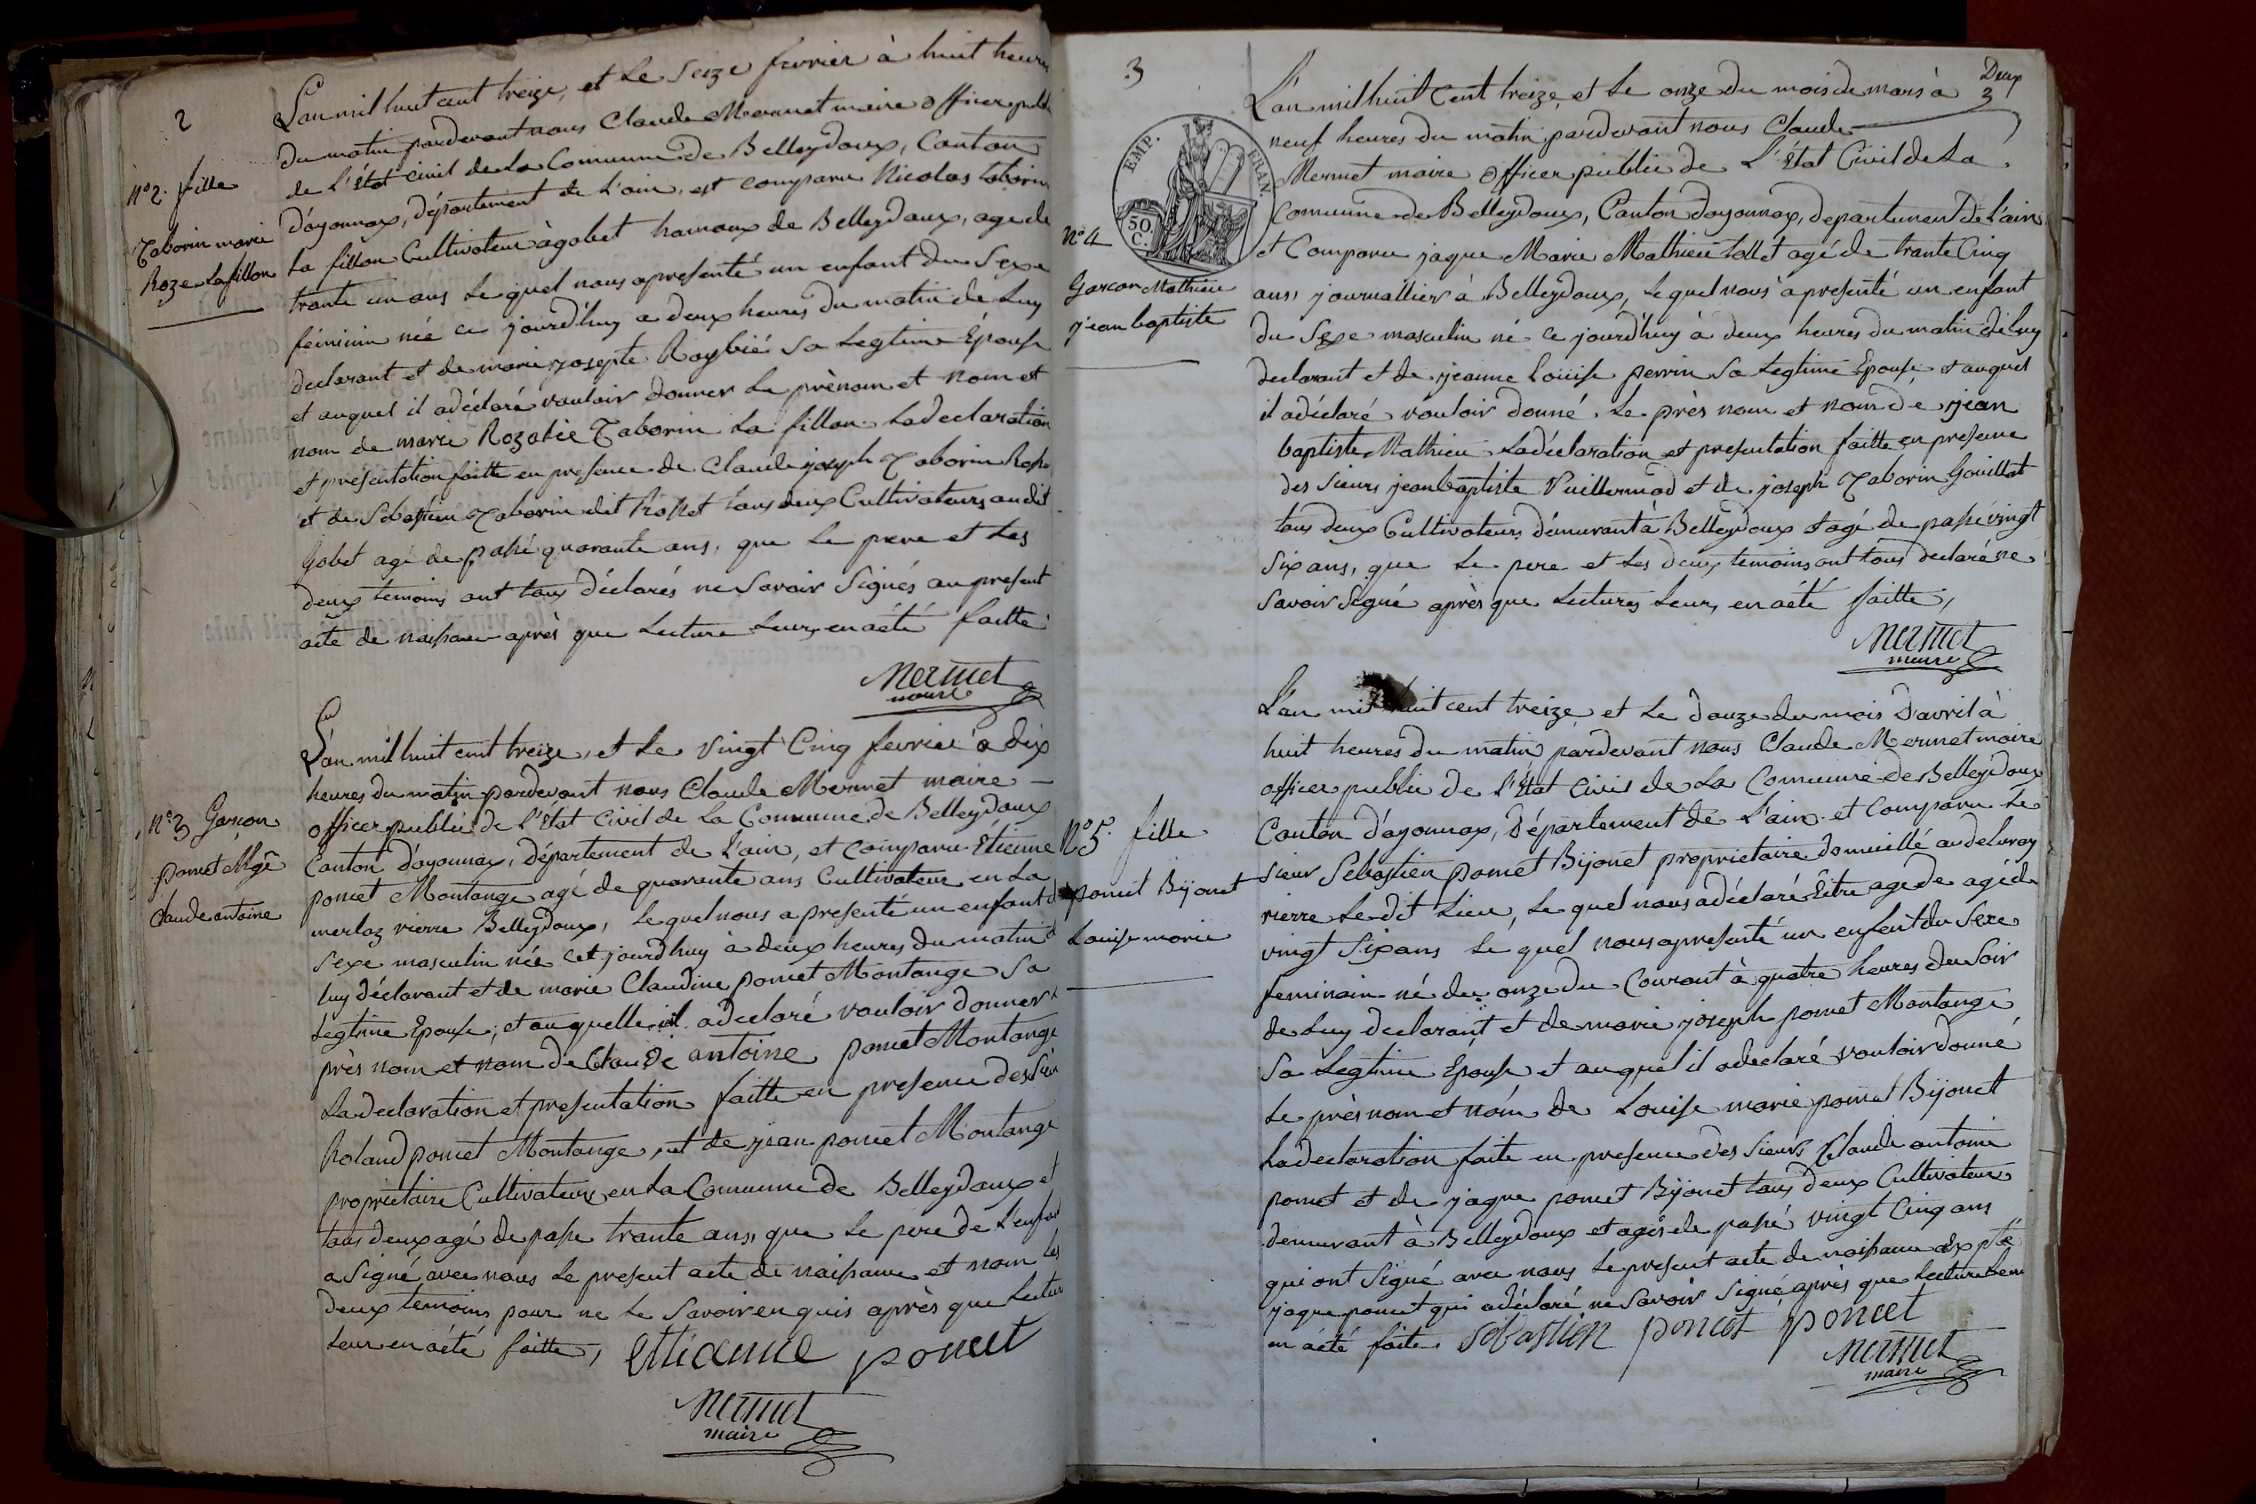 2
L'an mil huit cent treize, et le seize fevrier à huit heures
du matin pardevant nous Claude Mermet maire officer public
de L'état civil de la Commune de Belleydoux, Canton
nº 2. fille
d'ayonnax, département de L'ain, est comparu Nicolas taborin
Taborin marie
la fillon Cultivateur à gobet hamaux de Belleydoux, age de
Roze Lafillon
trante un ans le quel nous apresenté un enfant du Sexe
féminin née ce jourd'huy a deux heures du matin de Luy
declarant et de marie josepte Raybié Sa Legtime Épouse
et auquel il adéclaré vouloir donner Le prènom et nom et
nom de marie Rozalie Taborin La fillon Ladeclaration
et présentation faitte en presence de Claude joseph Taborin
et de Sebastien Taborin dit Rosset tous deux Cultivateurs audit
Gobet agé de passé quarante ans, que Le pere et Les
deux temoins ont tous déclarés ne Savoir Signés au present
acte de naissance après que Lecture Leurs en aété faitte
Mermet
maire
L'an mil huit cent treize, et Le vingt Cinq fevrier a dix
heures du matin pardevant nous Claude Mermet maire
nº 3 Garçon
officer publié de L'état Civil de La Commune de Belleydoux
poncet Mge
Canton d'ayonnax, département de L'ain, et comparu Étienne
Claude antoine
poncet Montange agé de quarante ans Cultivateur en La
merlaz rierre Belleydoux, Le quel nous a presenté un enfant d
Sexe masculin née cet jourd'huy à deux heures du matin d
luy déclarant et de marie Claudine poncet Montange Sa
Legtime Epouse, et auquelle il adeclaré vouloir donner
près nom et nom de Claude antoine poncet Montange
Ladeclaration et presentation faitte en presence des
Roland poncet Montange, et de jean poncet Montange
proprietaire Cultivateurs en La Commune de Belleydoux et
tous deux agé de passe trante ans, que Le pere de L'enfant
a Signé avec nous Le present acte de naissance et nom les
deux temoins pour ne Le Savoir enquis après que Lecture
Leur en aété faitte, ettienne poncet
Mermet
maire
3
Deux
3
L'an mil huit Cent treize, et Le onze du mois de mars à
neuf heures du matin pardevant nous Claude
EMP. FRAN.
50. C.
Mermet maire officer publié de L'état Civil de La
Commune de Belleydoux, Canton d'ayonnax, departement de L'ain
nº 4
et Comparu jaque Marie Mathieu tollet agé de trante Cinq
Garçon Mathieu
ans, journallier à Belleydoux, Le quel nous a presenté un enfant
jean baptiste
du Sexe masculin né ce jourd'huy à deux heures du matin de Luy
declarant et de jeanne Louise perrin Sa Legtime Epouse et auquel
il adéclaré vouloir donné Le près nom et nom de jean
baptiste Mathieu Ladéclaration et presentation faitte en presence
des Sieurs jean baptiste Vuillermod et de joseph Taborin Gouillat
tous deux Cultivateurs démurant à Belleydoux et agé de passé vingt
Six ans, que Le pere et Les deux temoins ont tous declaré ne
Savoir Signé après que Lectures Leurs en aété faitte,
Mermet
maire
L'an mil huit cent treize et Le douze du mois d'avril à
huit heures du matin pardevant nous Claude Mermet maire
officer publié de L'État Civil de La Commune de Belleydoux
nº 5. fille
Canton d'ayonnax, Département de L'ain et Comparu Le
Sieur Sebastien poncet Bijouet proprietaire domicillé au delavay
poncet Bijouet
rierre Ledit Lieu, Le quel nous adéclaré Être age de agé de
Louise marie
vingt Six ans Le quel nous apresenté un enfent du Sexe
feminain né du onze du Courant à quatre heures du Soir
de Luy declarant et de marie joseph poncet Montange
Sa Legtime Epouse et auquel il adeclaré vouloir donné
Le près nom et nom de Louise marie poncet Bijouet
Ladeclaration faite en presence des Sieurs Claude antoine
poncet et de jaque poncet Bijouet tous deux Cultivateurs
demurant à Belleydoux et agés de passé vingt Cinq ans
qui ont Signé avec nous Le present acte de naissance
jaque poncet qui adéclaré ne Savoir Signé après que Lecture Leur
en aété faite. Sebastien poncet poncet
Mermet
maire